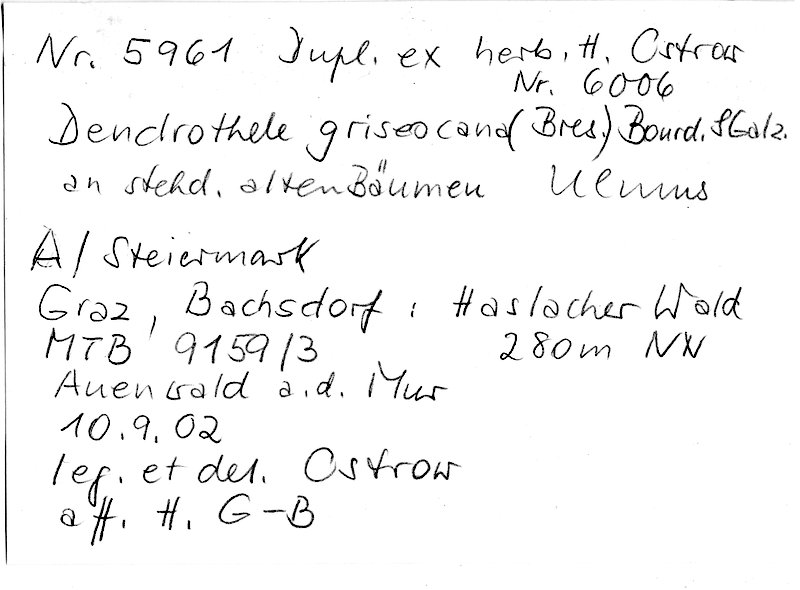 Nr. 5961 Dupl. ex herb. H. Ostrow
Nr. 6006
Dendrothele griseocana (Bres.) Bourd. & Galz.
an stehd. alten Bäumen Ulmus
A/ Steiermark
Graz, Bachsdorf: Haslacher Wald
MTB 9159/3 280m NN
Auenwald a.d. Mur
10.9.02
leg. et det. Ostrow
att. H. G-B